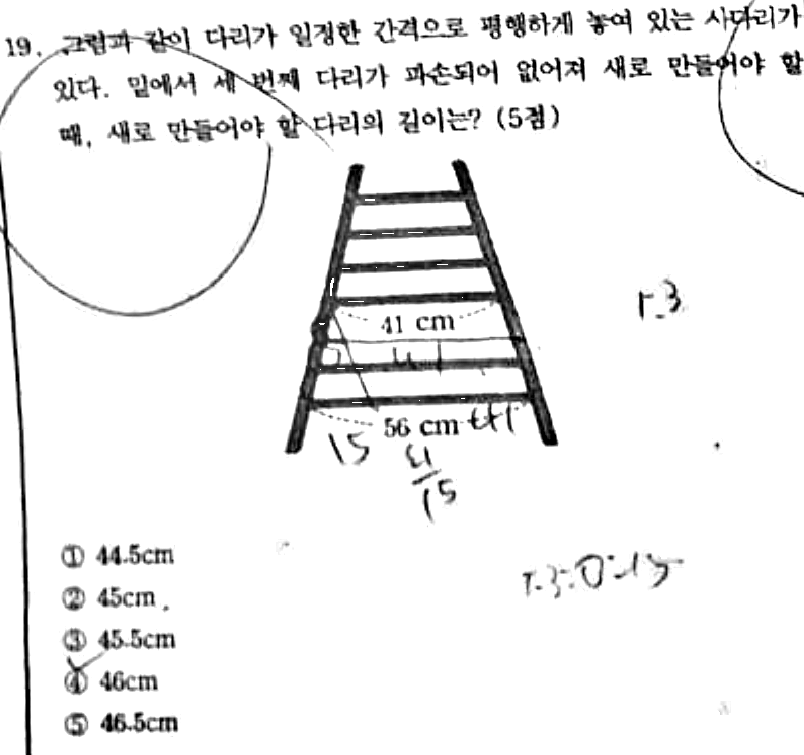 19. 그림과 같이 다리가 일정한 간격으로 평행하게 놓여 있는 사다리가
있다. 밑에서 세 번째 다리가 파손되어 없어져 새로 만들어야 할
때, 새로 만들어야 할 다리의 길이는? (5점)
41 cm
56 cm
15
41
15
① 44.5cm
② 45cm
③ 45.5cm
④ 46cm
⑤ 46.5cm